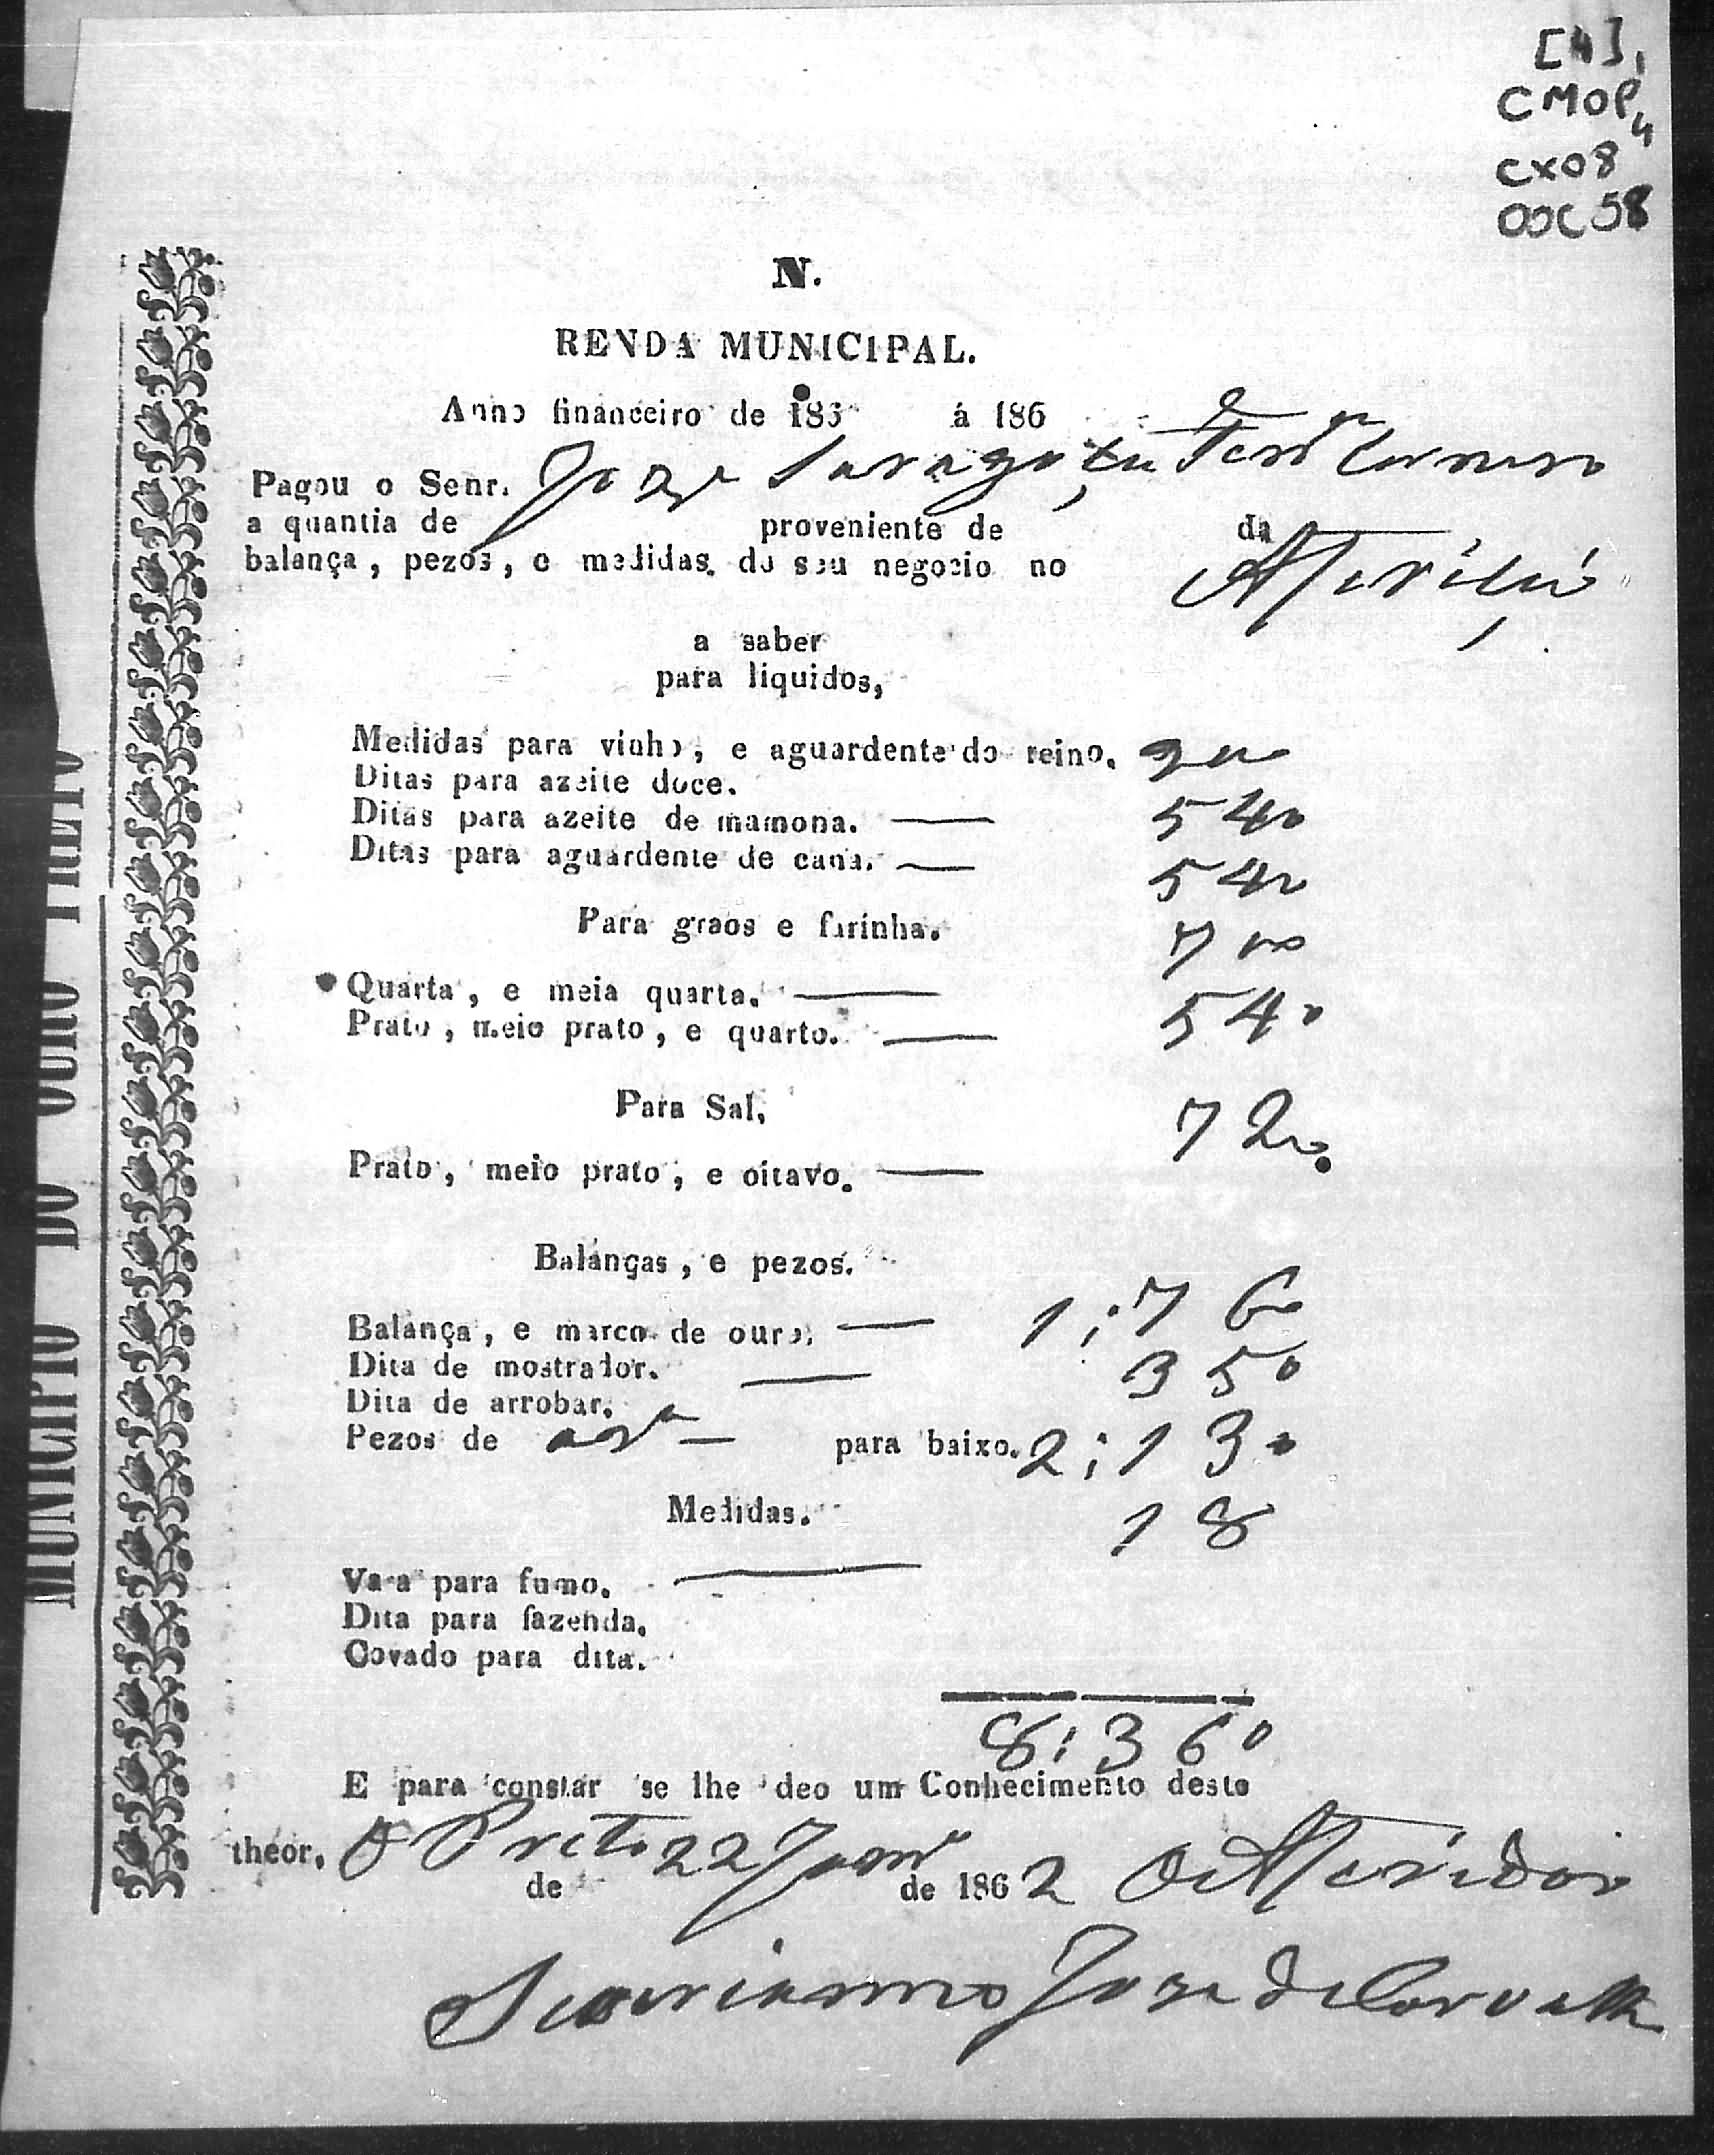 [4],
CMOP
CX08
DOC 58
N.
RENDA MUNICIPAL.
Anno financeiro de 186 á 186
Pagou o Senr. Joze
a quantia de proveniente de da
balança, pezos, e medidas do seu negocio no
a saber
para liquidos,
Medidas para vinho, e aguardente do reino.
Ditas para azeite doce. 540
Ditas para azeite de mamona.
Ditas para aguardente de cana. 540
Para graos e farinha. 700
Quarta, e meia quarta. 540
Prato, meio prato, e quarto.
Para Sal, 720
Prato, meio prato, e oitavo.
Balanças, e pezos.
Balança, e marco de ouro. 1:760
Dita de mostrador. 350
Dita de arrobar.
Pezos de para baixo. 2:130
Medidas. 18
Vara para fumo.
Dita para fazenda.
Covado para dita.
8:360
E para constar se lhe deo um Conhecimento deste
theor. O Preto 22 de Janro de 1862 O Aferidor
Joze de Carvalho
MUNICIPIO DO OURO PRETO